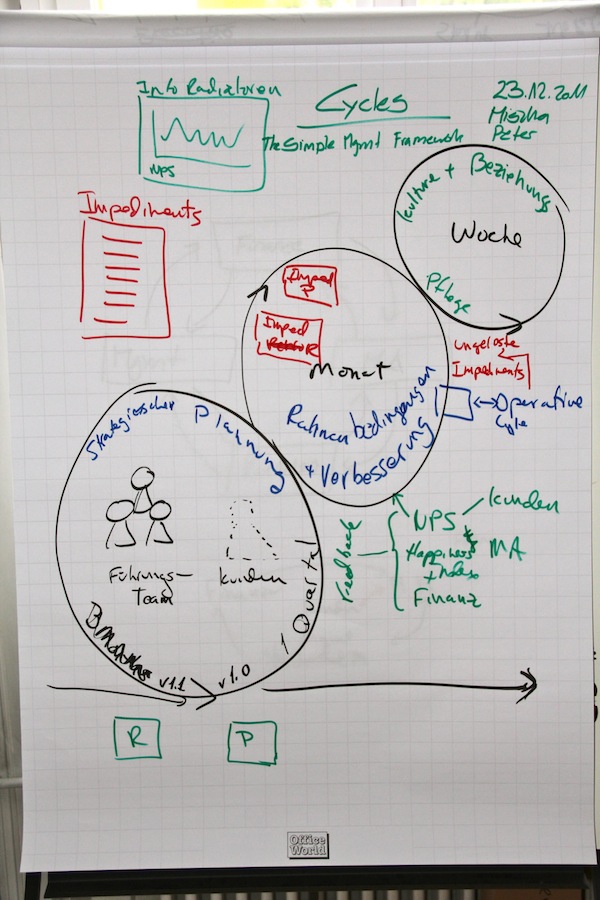 Info Radiatoren
NPS
Cycles
The Simple Mgmt Framework
23.12.2011
Mischa
Peter
Impediments
Kulture + Beziehungs
Woche
Pflege
Imped
P
Imped
R
Monat
Rahmenbedingungen
+ Verbesserung
ungelöste
Impediments
Operative
Cycle
Strategischer Plannung
Führungs-
Team
Kunden
1 Quartal
v1.1
v1.0
Feedback
NPS
Kunden
Happiness
Index
+
MA
Finanz
R
P
Office
World